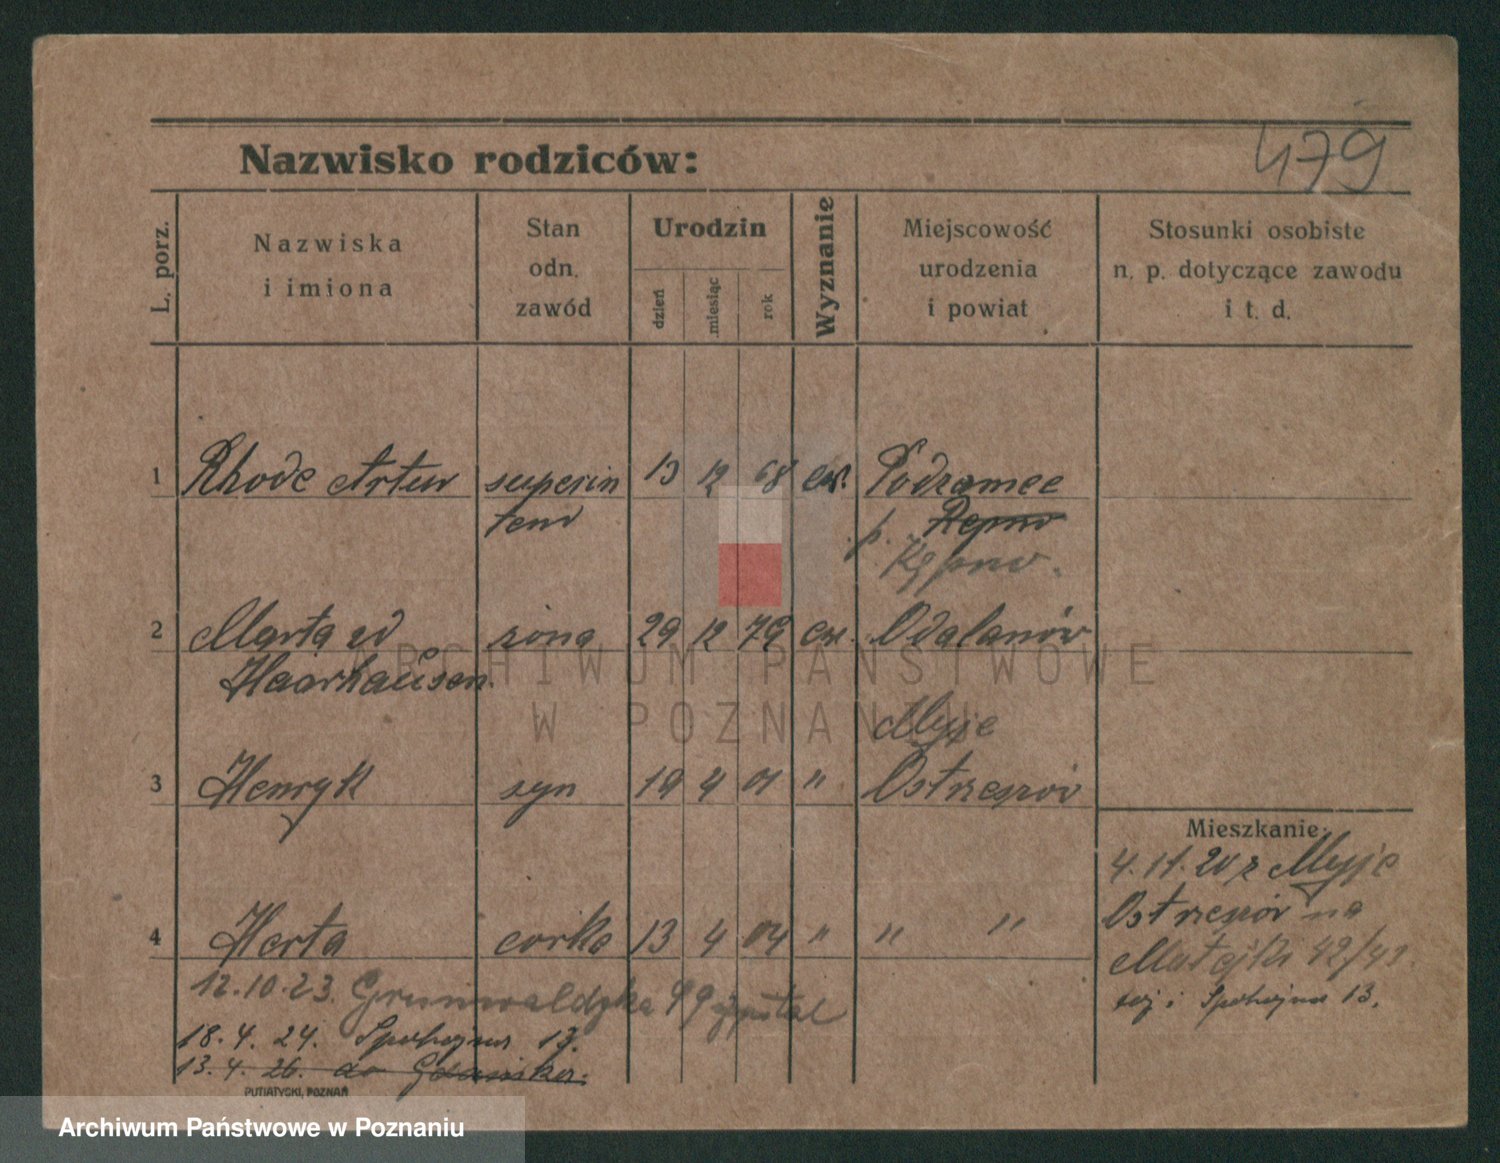 479
Nazwisko rodziców:
L. porz.
Nazwiska
i imiona
Stan
odn.
zawód
Urodzin
dzień
miesiąc
rok
Wyznanie
Miejscowość
urodzenia
i powiat
Stosunki osobiste
n. p. dotyczące zawodu
i t. d.
1 Rhode Artur superin 13 12 68 ew. Podzamce
tend p. Kępno
Kępno.
2 Marta zd żona 29 12 79 ew. Odolanów
Haarhausen
Myje
3 Henryk syn 19 4 01 " Ostrzeszów
4 Herta corka 13 4 04 " " "
Mieszkanie:
4.11.20 z Myje
Ostrzeszów na
Matejki 42/43.
Spokojna 13.
12.10.23. Grunwaldzka 99 szpital
18.4.24. Spokojna 13.
13.4.26. do Gdańska.
PUTIATYCKI, POZNAŃ
ARCHIWUM PAŃSTWOWE
W POZNANIU
Archiwum Państwowe w Poznaniu